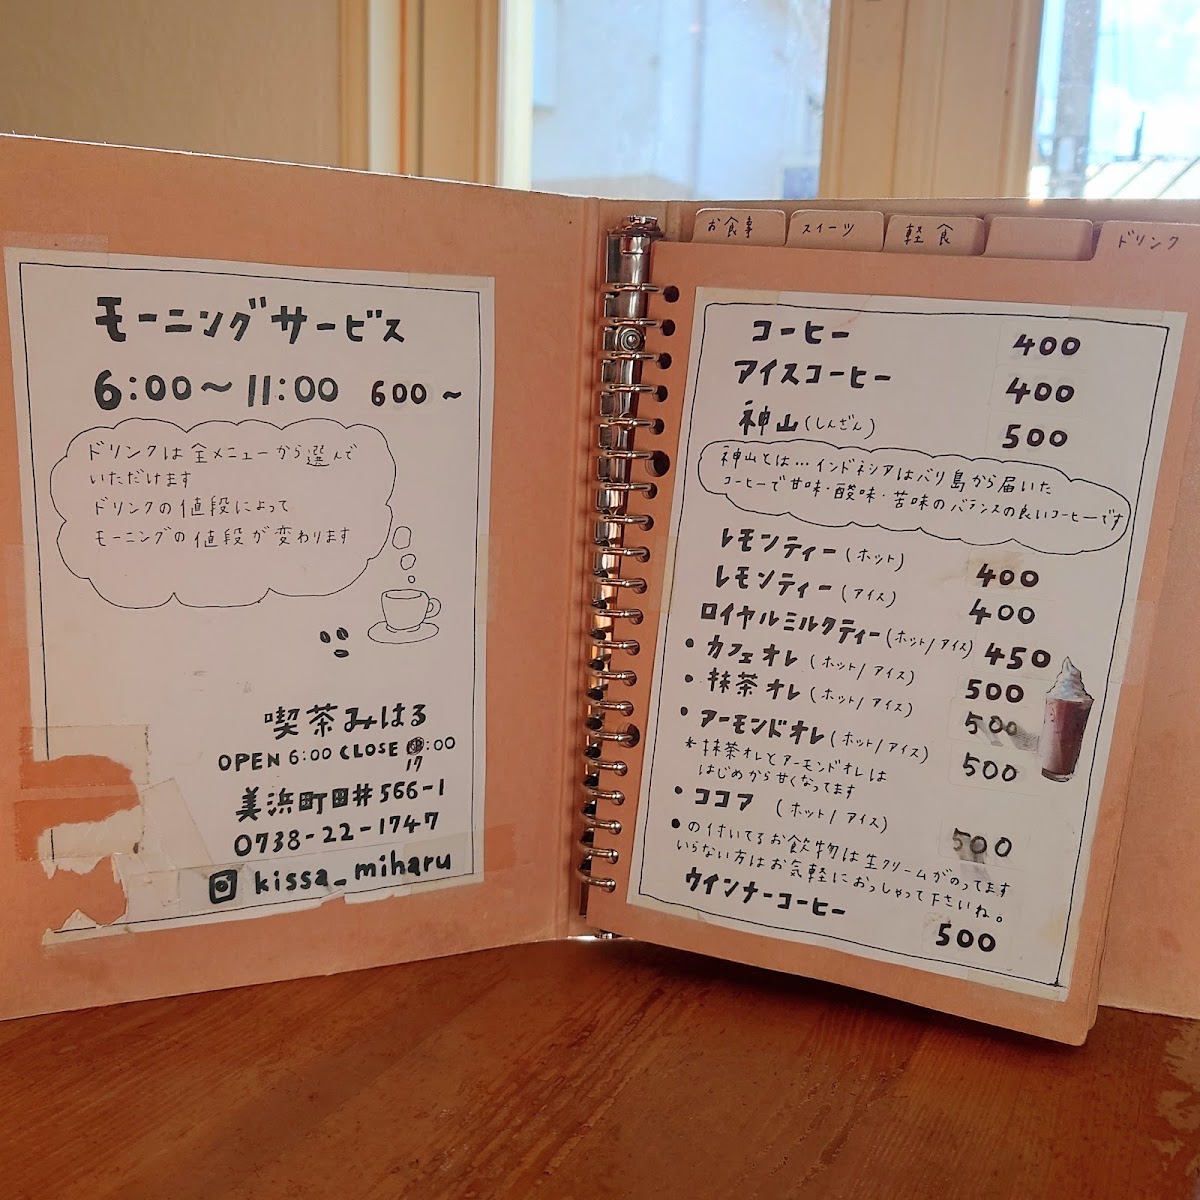 モーニングサービス
6:00〜11:00 600〜
ドリンクは全メニューから選んで
いただけます
ドリンクの値段によって
モーニングの値段が変わります
喫茶みはる
OPEN 6:00 CLOSE :00
17
美浜町田井566-1
0738-22-1747
kissa_miharu
お食事 スイーツ 軽食 ドリンク
コーヒー 400
アイスコーヒー 400
神山(しんざん) 500
神山とは…インドネシアはバリ島から届いた
コーヒーで甘味・酸味・苦味のバランスの良いコーヒーです
レモンティー(ホット) 400
レモンティー(アイス) 400
ロイヤルミルクティー(ホット/アイス) 450
・カフェオレ(ホット/アイス) 500
・抹茶オレ(ホット/アイス) 500
・アーモンドオレ(ホット/アイス) 500
*抹茶オレとアーモンドオレは
はじめから甘くなってます
・ココア(ホット/アイス) 500
●の付いてるお飲物は生クリームがのってます
いらない方はお気軽におっしゃって下さいね。
ウインナーコーヒー 500